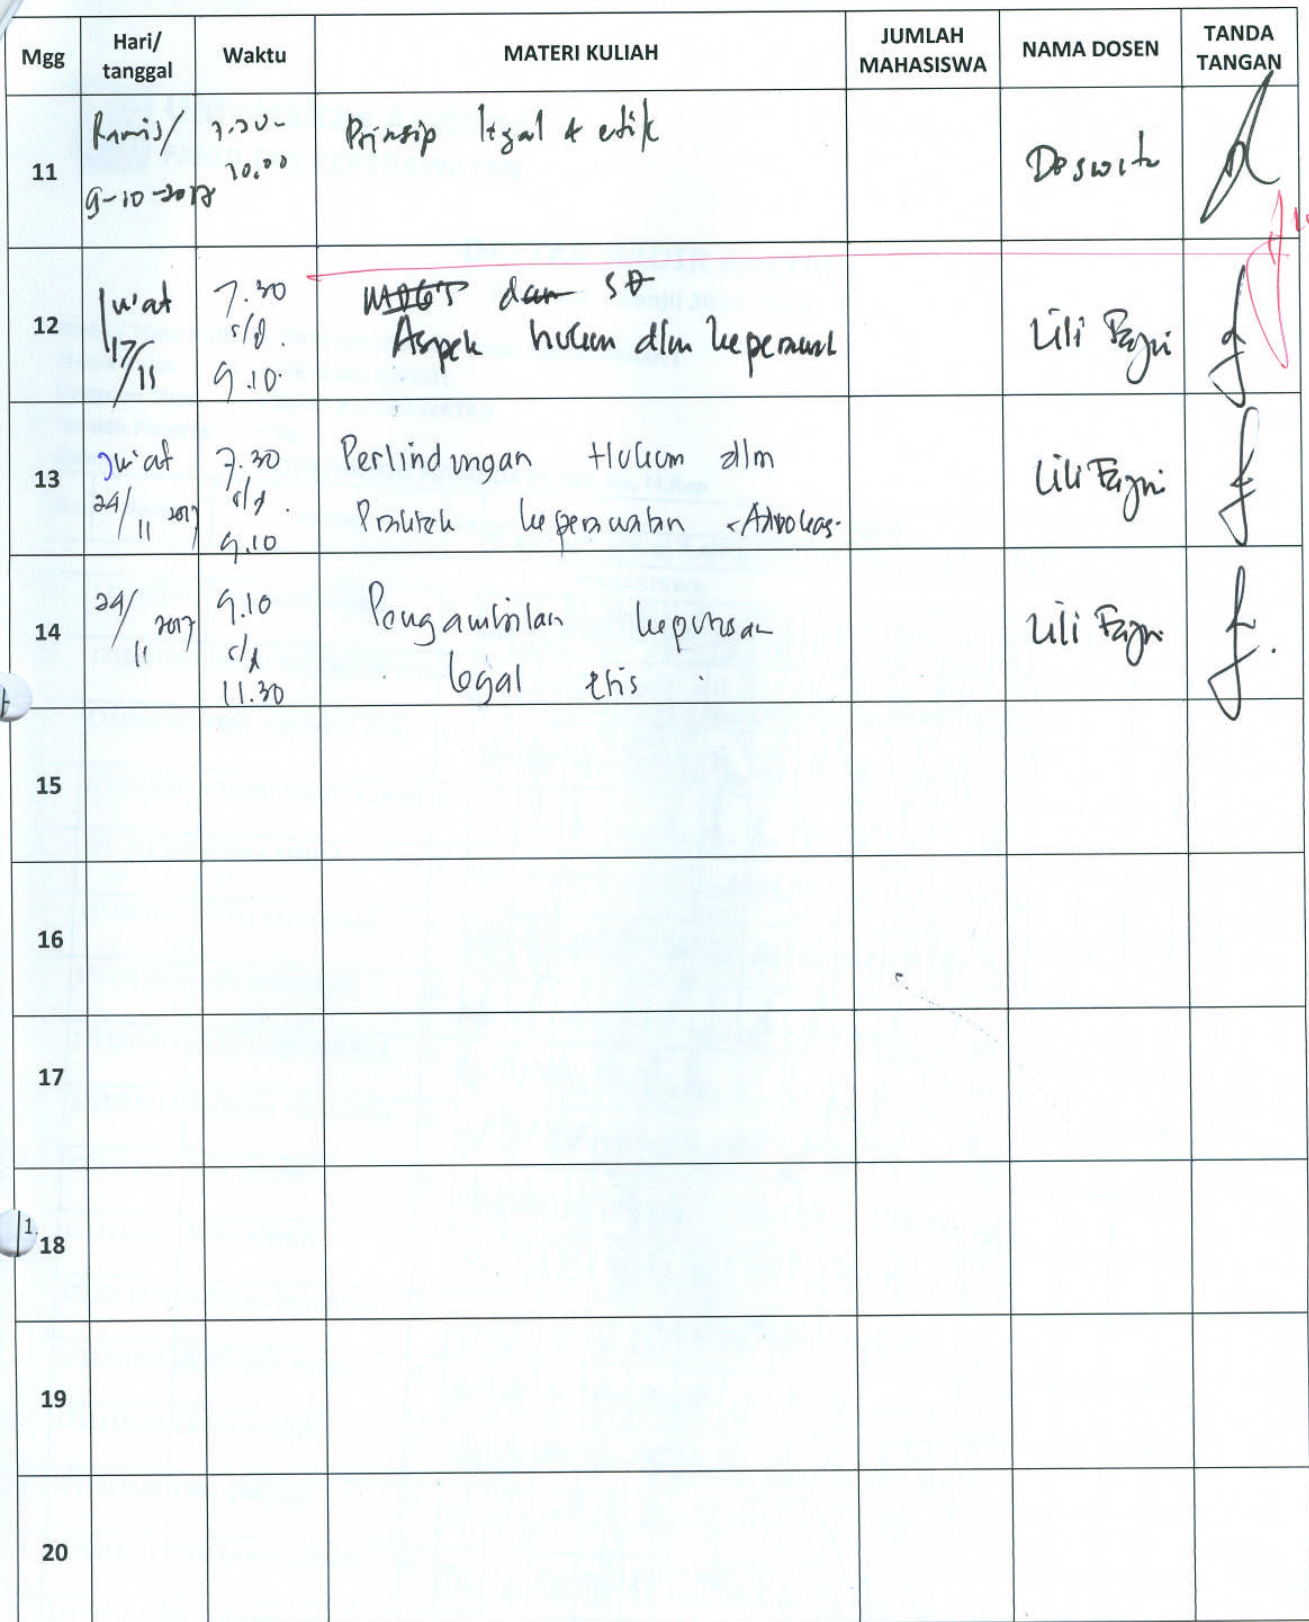 Mgg Hari/ tanggal Waktu MATERI KULIAH JUMLAH MAHASISWA NAMA DOSEN TANDA TANGAN
11 Kamis/ 9-10-2017 7.30- 10.00 Prinsip legal & etik Deswita
12 Jum'at 17/11 7.30 s/d 9.10 dan SD
Aspek hukum dlm keperawat Lili Fajri
13 Jum'at 24/11 2017 7.30 s/d 9.10 Perlindungan Hukum dlm
Praktek keperawatan - Advokas. Lili Fajri
14 24/11 2017 9.10 s/d 11.30 Pengambilan keputusan
legal etis Lili Fajri
15
16
17
1.
18
19
20